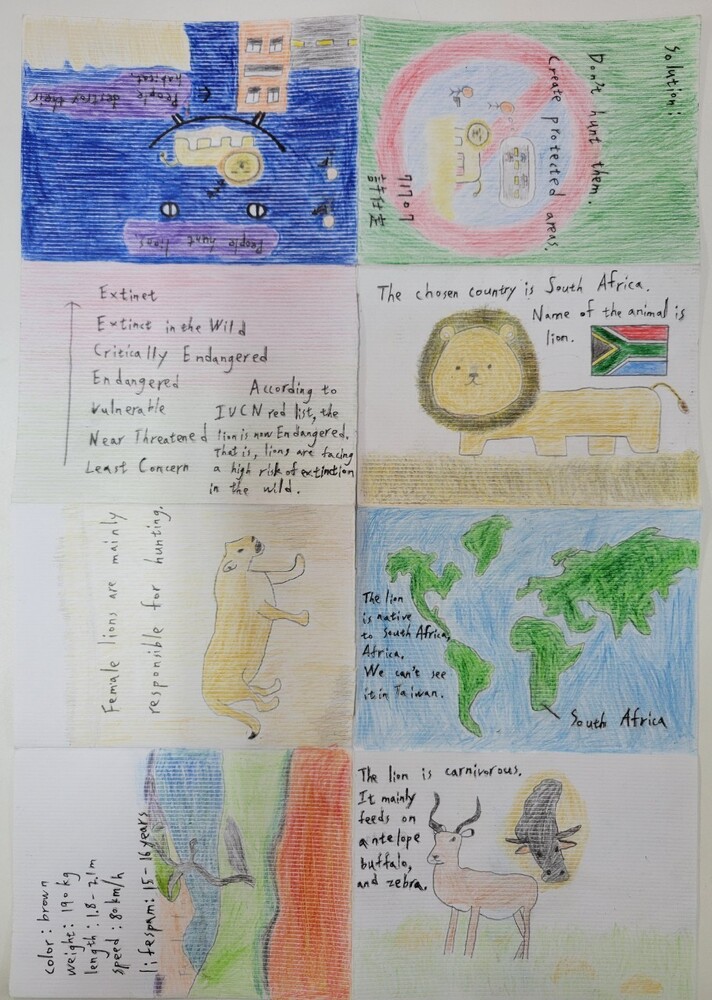 People hunt lions
People destroy their
habitat.
Solution:
Don't hunt them.
Create protected areas.
71707
Extinct
Extinct in the Wild
Critically Endangered
Endangered
Vulnerable
Near Threatened
Least Concern
According to
IUCN red list, the
lion is now Endangered.
That is, lions are facing
a high risk of extinction
in the wild.
The chosen country is South Africa.
Name of the animal is
lion.
Female lions are mainly
responsible for hunting.
The lion
is native
to South Africa,
Africa.
We can't see
it in Taiwan.
South Africa
color: brown
weight: 190kg
length: 1.8-2.1m
speed: 80km/h
lifespam: 15-16years
The lion is carnivorous.
It mainly
feeds on
antelope
buffalo,
and zebra.